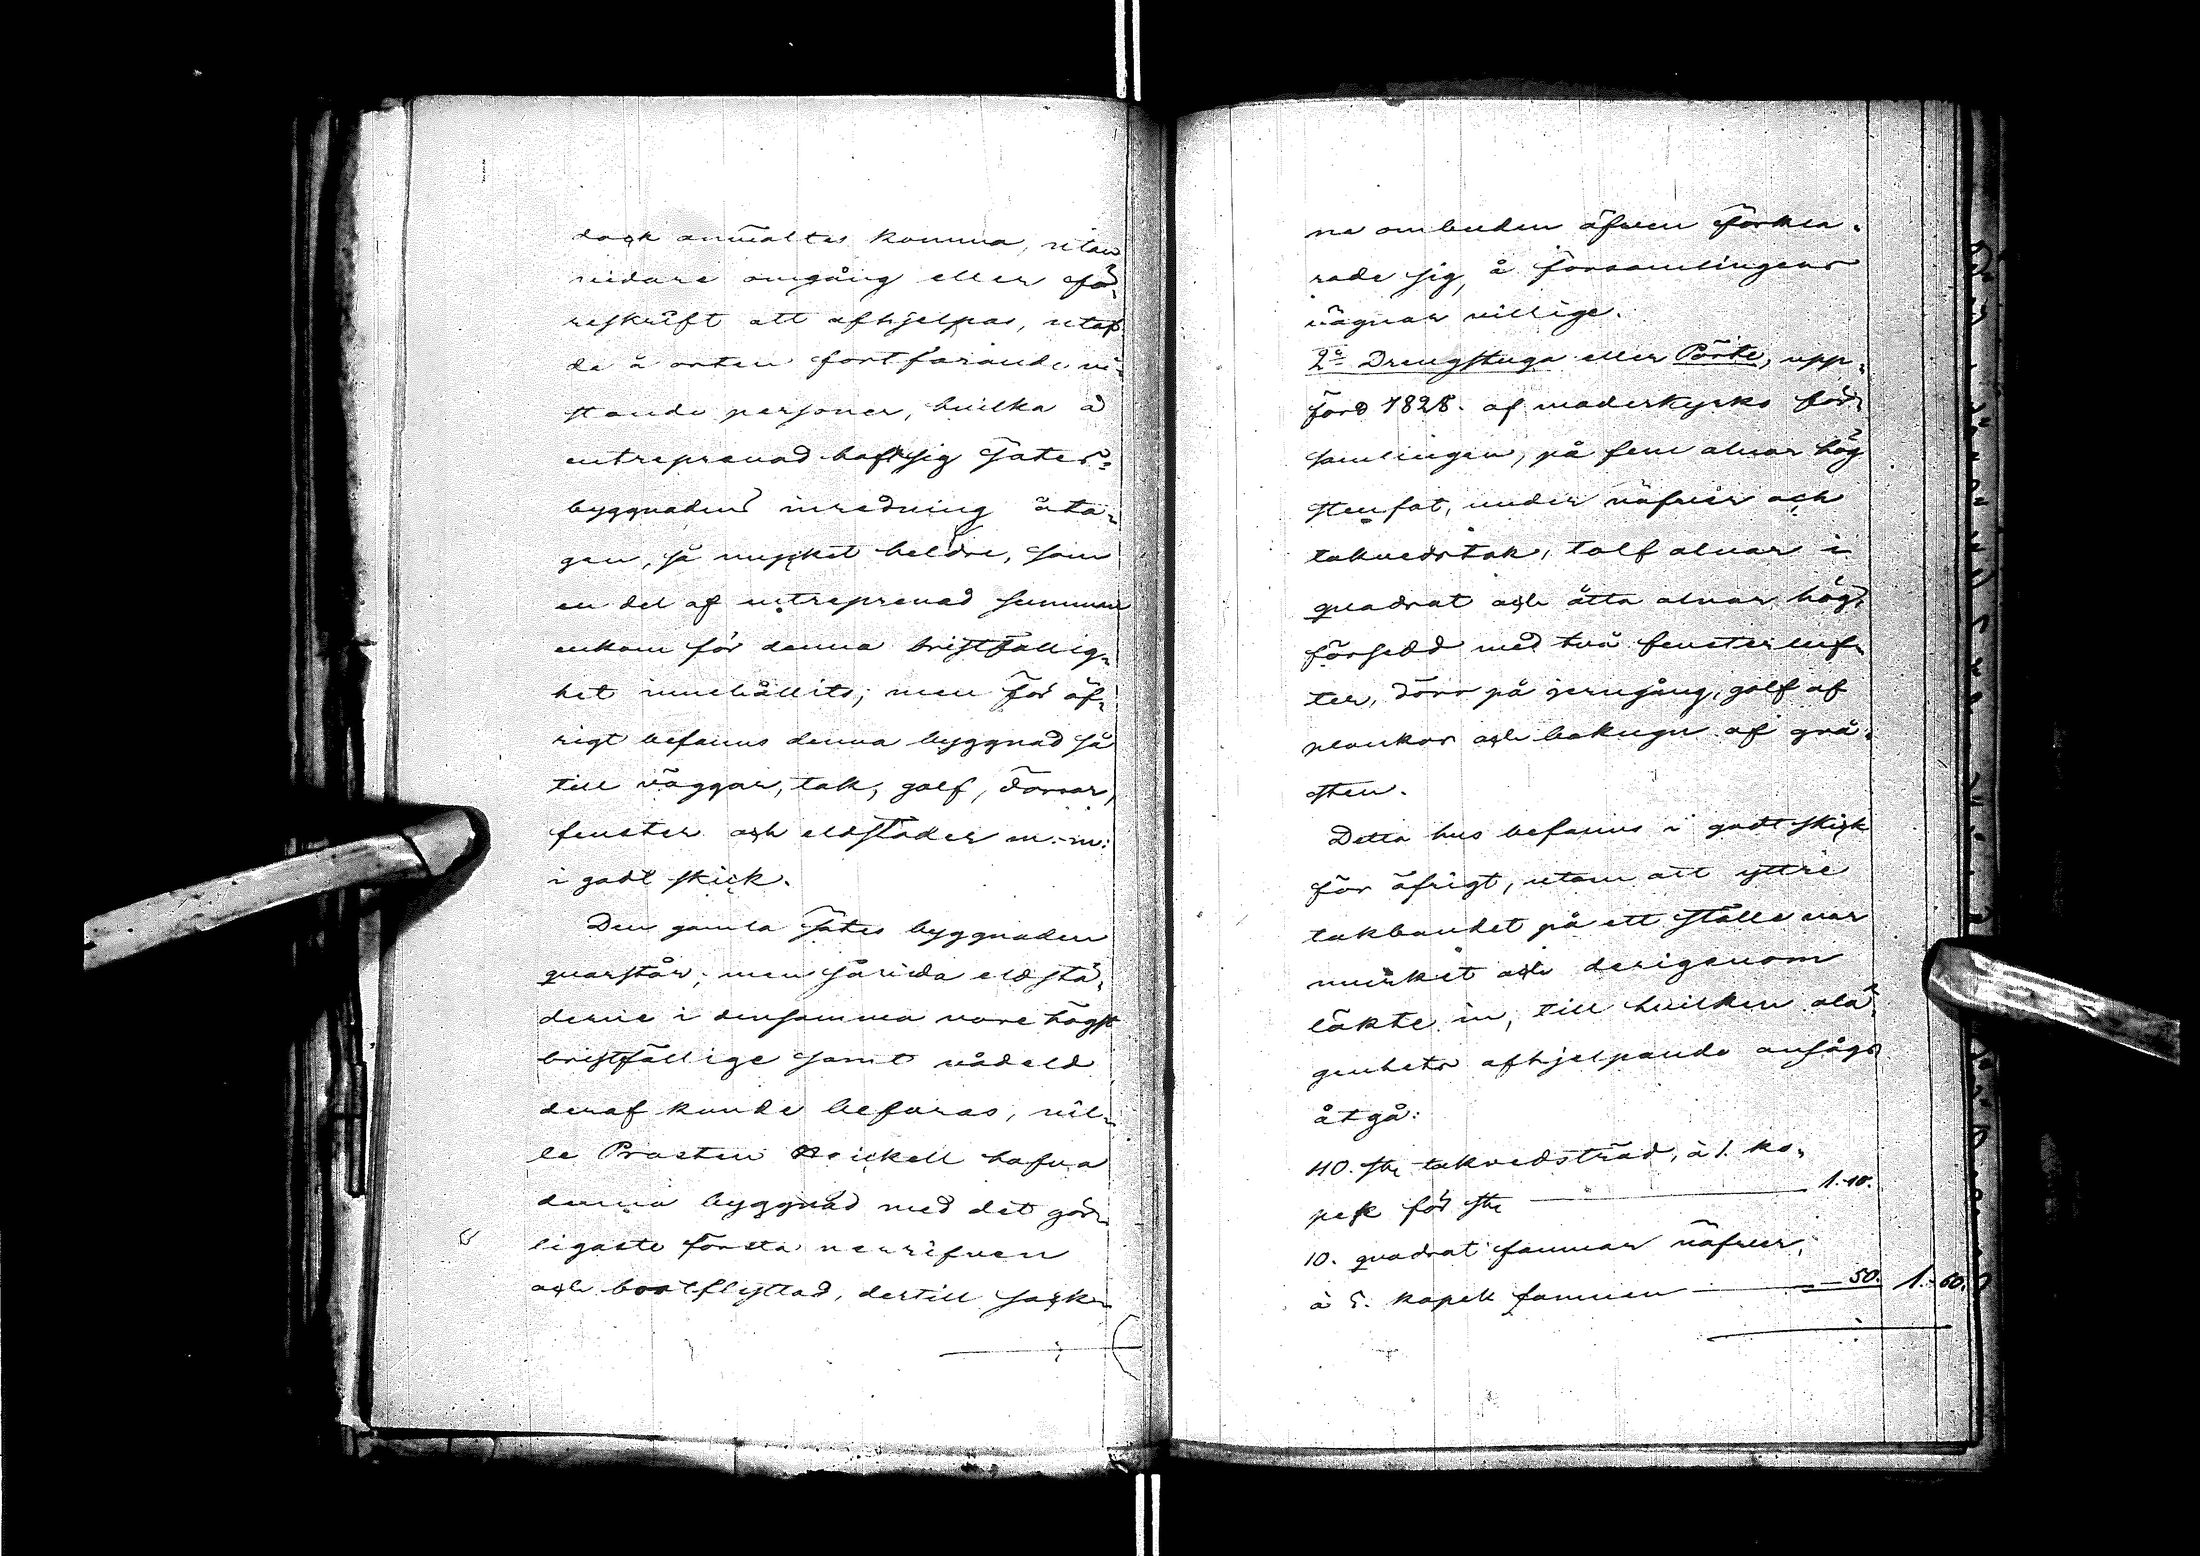 dock anmältes komma, utan
vidare omgång eller fö-
reskrift att afhjelpas, utaf
de å orten fortfarande vi-
stande personer, hvilka å
entreprenad haft sig Sätes-
byggnadens inredning åta-
gen, så mycket heldre, som
en del af entreprenad summan
enkom för denna bristfällig-
het innehållits; men för öf-
rigt befanns denna byggnad så
till väggar, tak, golf, dörrar,
fenster och eldstäder m: m:
i godt skick.
Den gamla Sätes byggnaden
quarstår; men såvida eldstä-
derne i densamma vore högst
bristfällige samt vådeld
deraf kunde befaras, vil-
le Prosten Heickell hafva
denna byggnad med det gör-
ligaste första nerrifven
och bortflyttad, dertill sock-
ne ombuden äfven förkla-
rade sig, å församlingens
vägnar villige.
2o Drengstuga eller Pörte, upp-
förd 1828. af moderkyrko för-
samlingen, på fem alnar hög
stenfot, under näfver och
takvedstak, tolf alnar i
quadrat och åtta alnar hög,
försedd med två fensterluf-
ter, dörr på jerngång, golf af
plankor och bakugn af grå-
sten.
Detta hus befanns i godt skick
för öfrigt, utom att yttre
takbandet på ett ställe var
murket och derigenom
läkte in, till hvilken olä-
genhets afhjelpande ansågs
åtgå:
110. st. takvedsträd, à 1. ko-
pek för st. 1. 10.
10. quadrat famnar näfver,
à 5. kopek famnen 50. 1. 60.